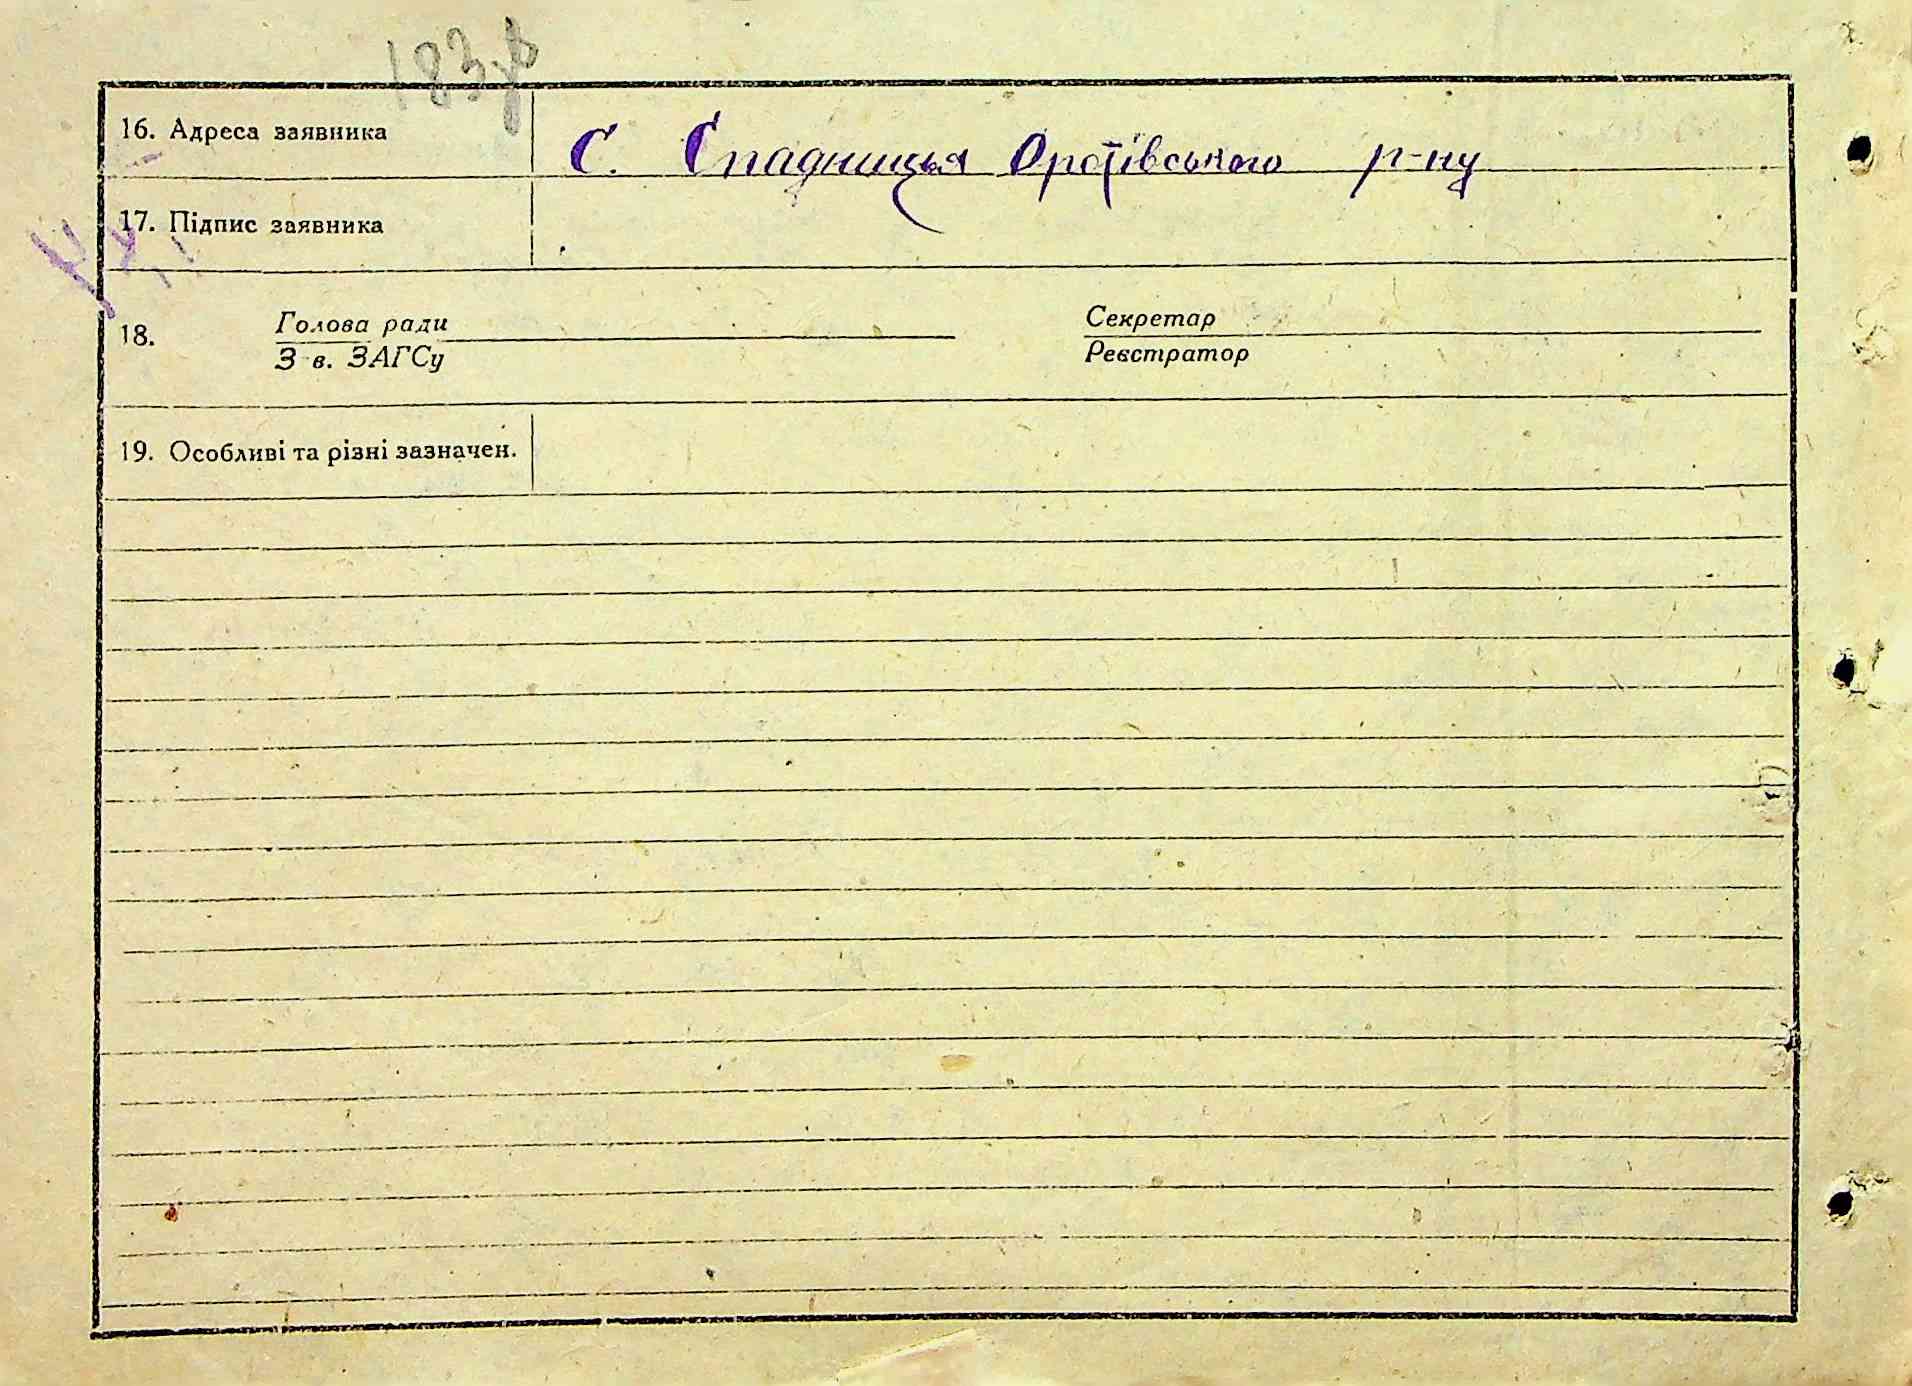 183зв
16. Адреса заявника
С. Спадниця Оратівського р-ну
17. Підпис заявника
18.
Голова ради
З в. ЗАГСу
Секретар
Реєстратор
19. Особливі та різні зазначен.